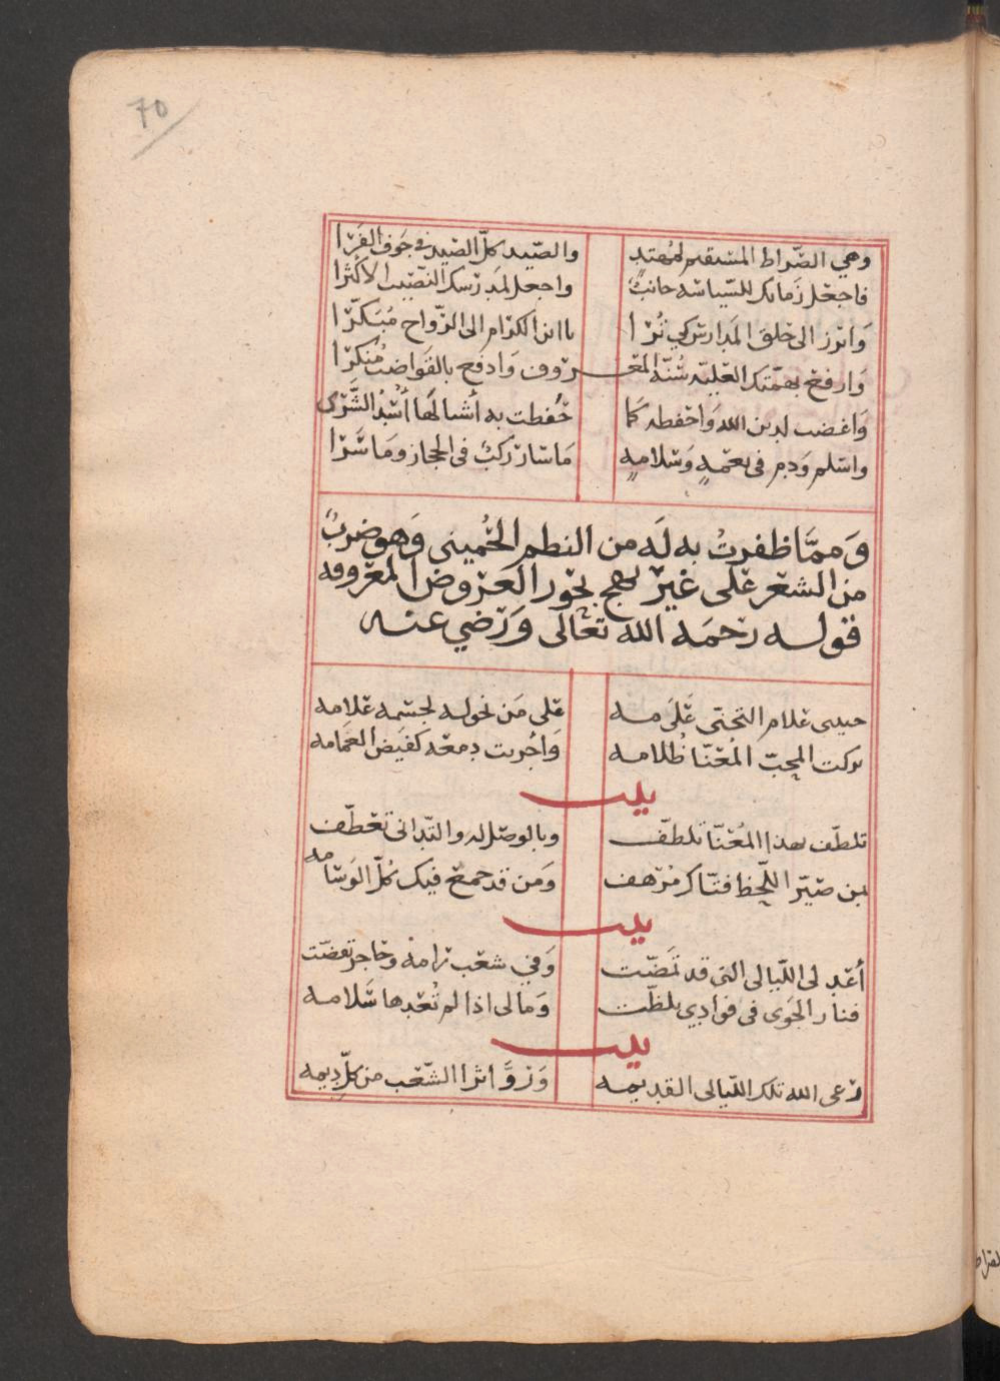 70
وهي الصّراط المستقيم لمُهتدٍ والصّيد كلّ الصّيد في جَوف الفَرَا
فاجعَل زَمانك للسّياسَه جانبٌ واجعل لمَدرَسك النّصيب الاكثرَا
وَابرز الى حلق المَدارس كي تُرَا ياابن الكرَام الى الرّواح مُبَكّرَا
وَارفع بهمّتك العَليّه سُنّة المعـروف وَادفع بالقَواضب مُنكرَا
وَاغضب لدين الله وَاحفظه كمَا حُفظت به أشبالَها أُسْدُ الشَّرَى
واسلم وَدم في نعمَةٍ وَسَلامةٍ مَاسَار رَكبٌ في الحجاز ومَا سَرَا
وَممَّا ظفرتُ به لَه من النظم الحُميني وَهو ضربٌ
من الشعر عَلى غير نهج بحور العَروض المعَروفه
قوله رحمَه الله تعَالى وَرَضي عنه
حبيبى عَلام التجنّي عَلَى مـه عَلى مَن نحوله لجسمه عَلامه
تركت المحبّ المُعَنّا ظُلامه وَاجريت دمعَه كفيض الغمَامه
بيت
تلطّف بهذا المُعَنّا تلطّف وبالوصَل له والتّدانى تعَطّف
لمن صَيّر اللّحظ فتّاك مُرهف وَمن قد جمع فيك كُلّ الوَسَامه
بيت
أعَد لى اللّيالى التي قد تمَضّت وَفي شعَب رامه وحَاجر تقضّت
فنار الجَوى في فوادي تلظّت وَمالى اذا لم تُعَدها سَلامه
بيت
رَعى الله تلك اللّيالى القديمه وَرَوَّا ثرا الشّعَب من كلّ ديمه